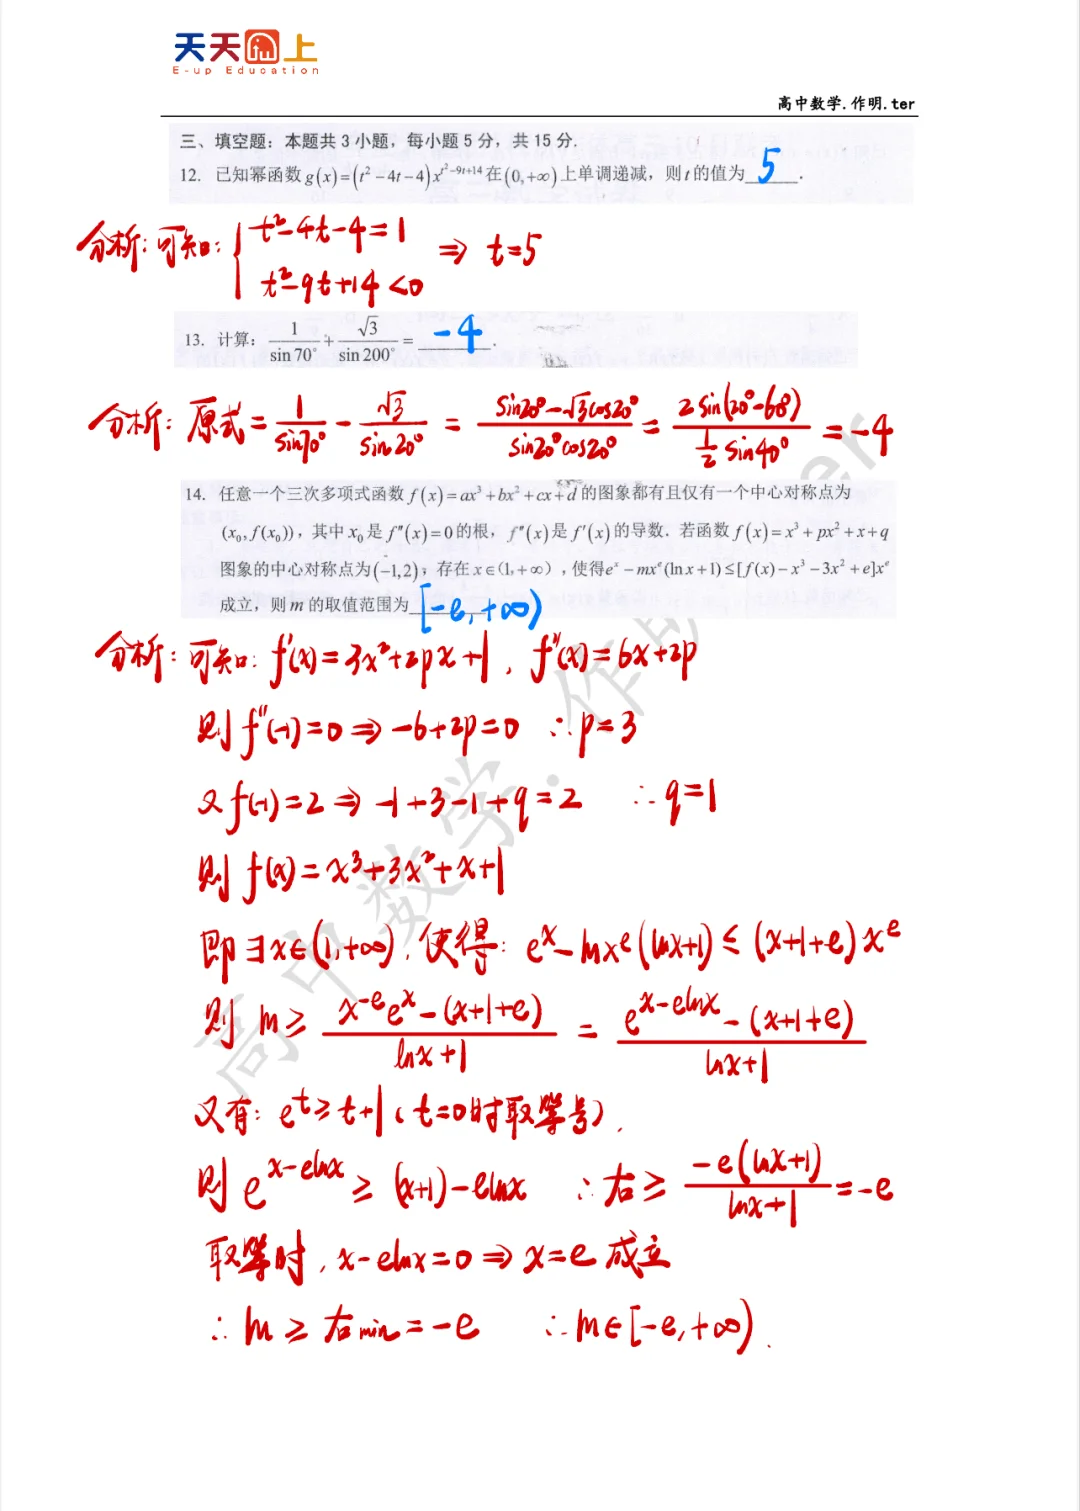 天天向上
E-up Education
高中数学.作明.ter
三、填空题：本题共 3 小题，每小题 5 分，共 15 分.
12. 已知幂函数 g(x)=(t²−4t−4)x^{t²−9t+14} 在(0,+∞)上单调递减，则 t 的值为 5 .
分析：可知：{ t²−4t−4=1
t²−9t+14<0 ⇒ t=5
13. 计算：1/sin70° + √3/sin200° = −4 .
分析：原式= 1/sin70° − √3/sin20° = (sin20°−√3cos20°)/(sin20°cos20°) = 2sin(20°−60°)/(½sin40°) = −4
14. 任意一个三次多项式函数 f(x)=ax³+bx²+cx+d 的图象都有且仅有一个中心对称点为
(x₀,f(x₀))，其中 x₀ 是 f″(x)=0 的根，f″(x)是 f′(x)的导数．若函数 f(x)=x³+px²+x+q
图象的中心对称点为(−1,2)，存在 x∈(1,+∞)，使得eˣ−mxᵉ(lnx+1)≤[f(x)−x³−3x²+e]xᵉ
成立，则 m 的取值范围为 [−e,+∞)
分析：可知：f′(x)=3x²+2px+1，f″(x)=6x+2p
则 f″(−1)=0 ⇒ −6+2p=0 ∴p=3
又 f(−1)=2 ⇒ −1+3−1+q=2 ∴q=1
则 f(x)=x³+3x²+x+1
即 ∃x∈(1,+∞)，使得：eˣ−mxᵉ(lnx+1)≤(x+1+e)xᵉ
则 m≥ (x⁻ᵉeˣ−(x+1+e))/(lnx+1) = (e^{x−elnx}−(x+1+e))/(lnx+1)
又有：eᵗ≥t+1（t=0时取等号）.
则 e^{x−elnx} ≥ (x+1)−elnx ∴右≥ −e(lnx+1)/(lnx+1) =−e
取等时，x−elnx=0 ⇒ x=e 成立
∴ m≥右min=−e ∴m∈[−e,+∞).
高中数学.作明.ter